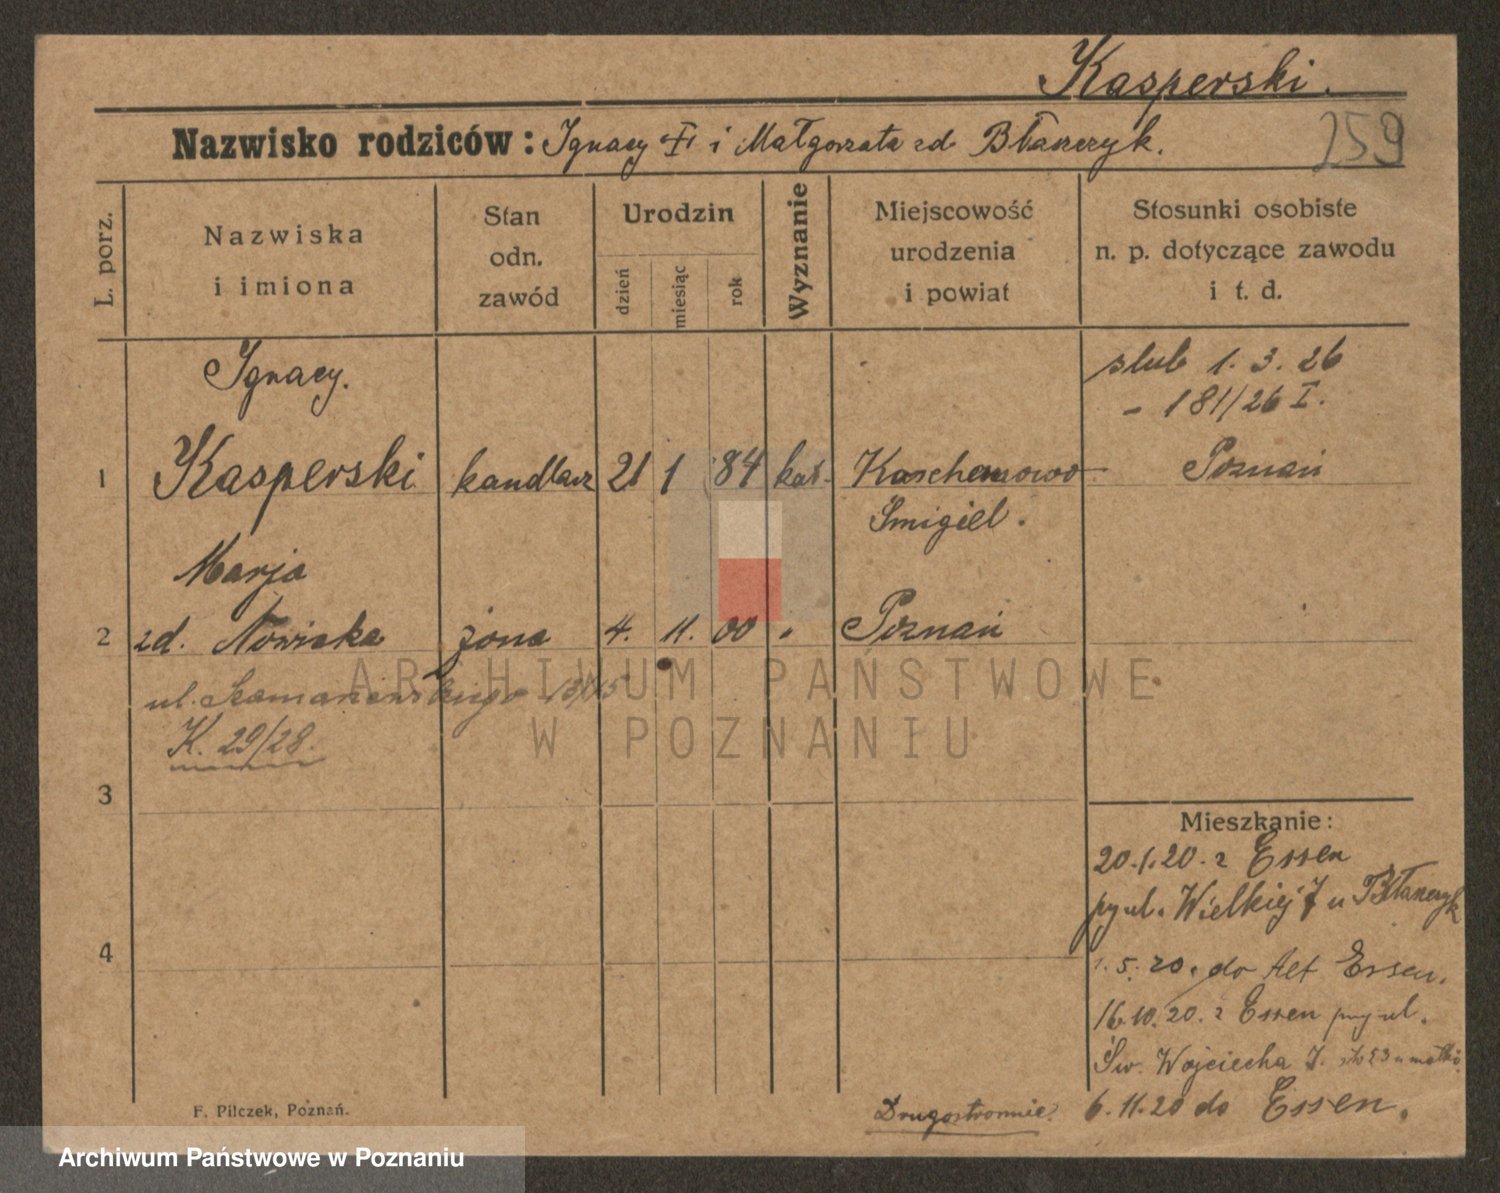 Kasperski.
259
Nazwisko rodziców: Ignacy † i Małgorzata zd Błaszczyk.
L. porz.
Nazwiska
i imiona
Stan
odn.
zawód
Urodzin
dzień
miesiąc
rok
Wyznanie
Miejscowość
urodzenia
i powiat
Stosunki osobiste
n. p. dotyczące zawodu
i t. d.
Ignacy.
ślub 1. 3. 26
- 181/26 I.
1 Kasperski handlarz 21 1 84 kat. Poznań
Śmigiel.
Marja
2 zd. Nowicka żona 4. 11. 00 " Poznań
ul. Szamarzewskiego
K. 29/28.
3
4
Mieszkanie:
20.1.20. z Essen
ul. Wielkiej 7 u Błaszczyk
1.5.20. do Alt Essen.
16.10.20. z Essen ul.
Św. Wojciecha u matki
6.11.20 do Essen.
Drugostronnie.
F. Pilczek, Poznań.
ARCHIWUM PAŃSTWOWE
W POZNANIU
Archiwum Państwowe w Poznaniu